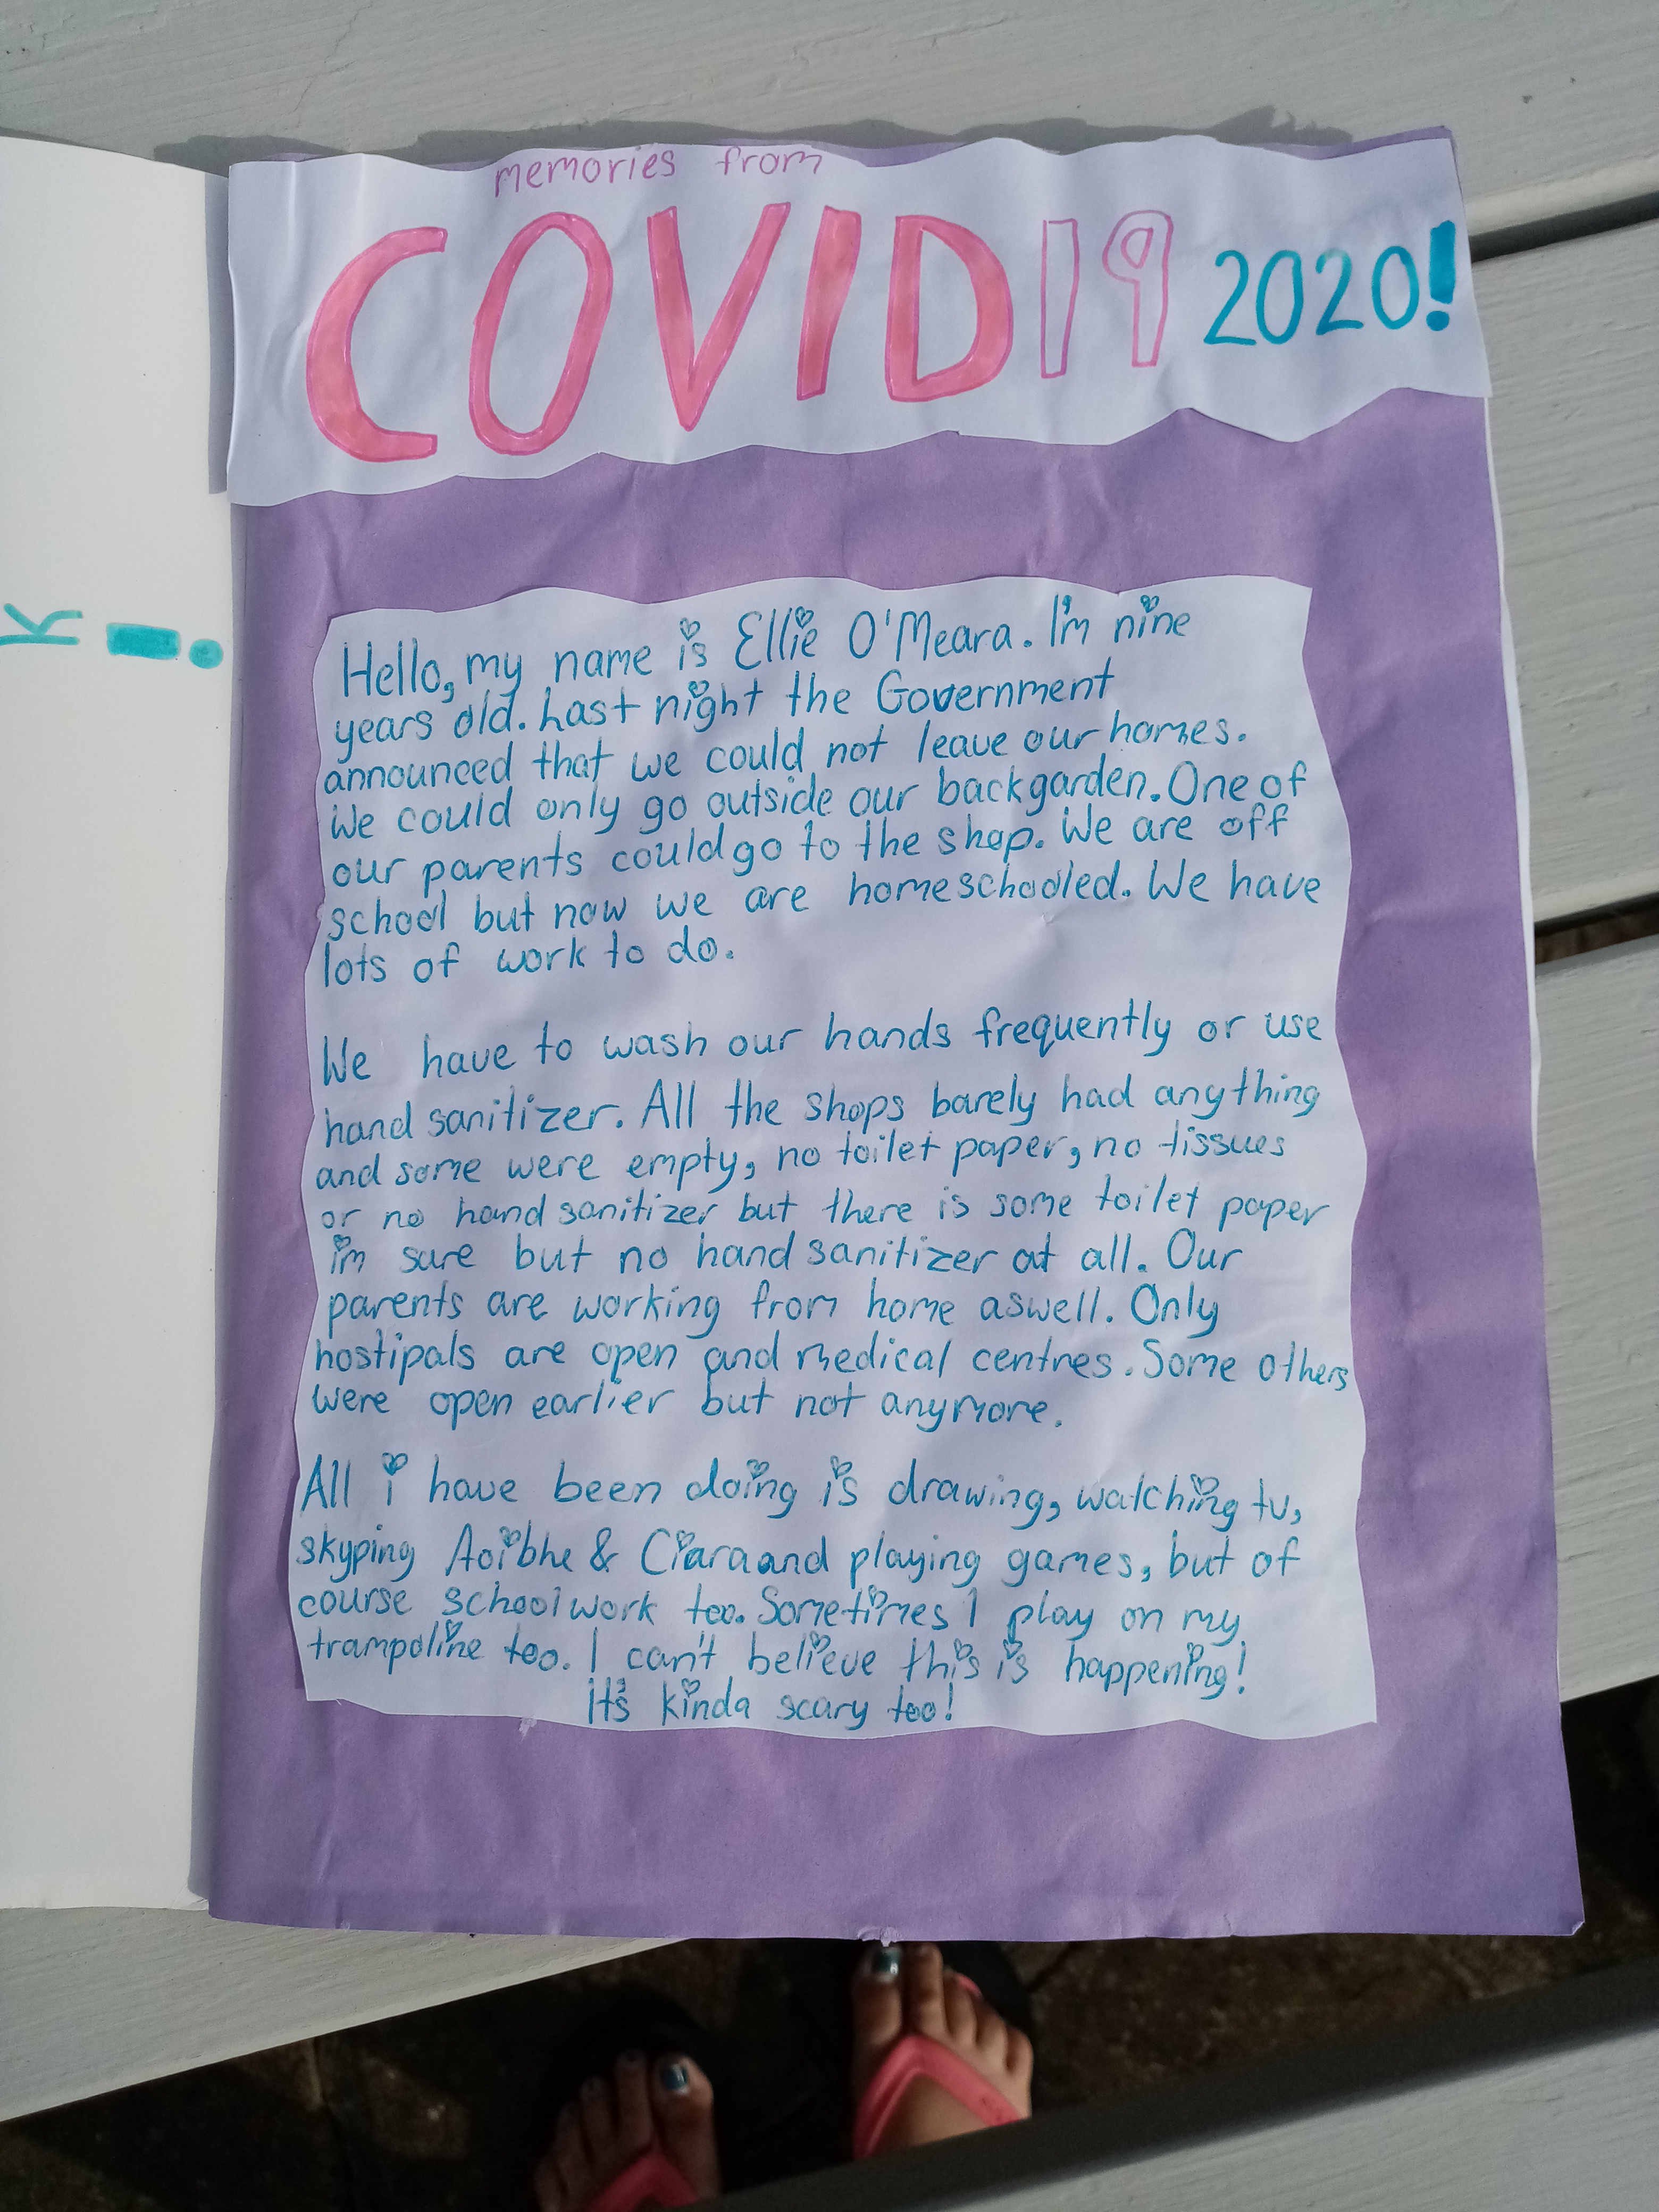 memories from
COVID19 2020!
K!
Hello, my name is Ellie O'Meara. I'm nine
years old. Last night the Government
announced that we could not leave our homes.
We could only go outside our backgarden. One of
our parents could go to the shop. We are off
school but now we are homeschooled. We have
lots of work to do.
We have to wash our hands frequently or use
hand sanitizer. All the shops barely had anything
and some were empty, no toilet paper, no tissues
or no hand sanitizer but there is some toilet paper
i'm sure but no hand sanitizer at all. Our
parents are working from home aswell. Only
hostipals are open and medical centres. Some others
were open earlier but not anymore.
All i have been doing is drawing, watching tv,
skyping Aoibhe & Ciara and playing games, but of
course schoolwork too. Sometimes I play on my
trampoline too. I can't believe this is happening!
it's kinda scary too!